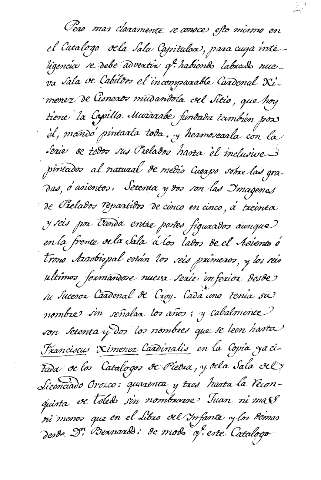 Pero mas claramente se conoce esto mismo en
el Catalogo de la Sala Capitular, para cuya inte-
ligencia se debe advertir q.e habiendo labrado nue-
va Sala de Cabildos el incomparable Cardenal Xi-
menez de Cisneros mudandola del Sitio, que hoy
tiene la Capilla Muzarabe fundada tambien por
él, mandó pintarla toda, y hermosearla con la
Serie de todos sus Prelados hasta él inclusive
pintados al natural de medio Cuerpo sobre las gra-
das, ó asientos. Setenta y dos son las Imagenes
de Prelados repartidos de cinco en cinco, á treinta
y seis por vanda entre postes figurados aunque
en la frente de la Sala á los lados de el Asiento ó
trono Arzobispal están los seis primeros, y los seis
ultimos formandose nueva serie inferior desde
su sucesor Cardenal de Croy. Cada uno tenia su
nombre sin señalar los años; y cabalmente
son setenta y dos los nombres que se leen hasta
Franciscus Ximenez Cardinalis en la Copia ya ci-
tada de los Catalogos de Piedra, y de la Sala del
Licenciado Orozco: quarenta y tres hasta la recon-
quista de Toledo sin nombrarse Juan ni mas
ni menos que en el Libro del Infante y los demas
desde D.n Bernardo: de modo q.e este Catalogo